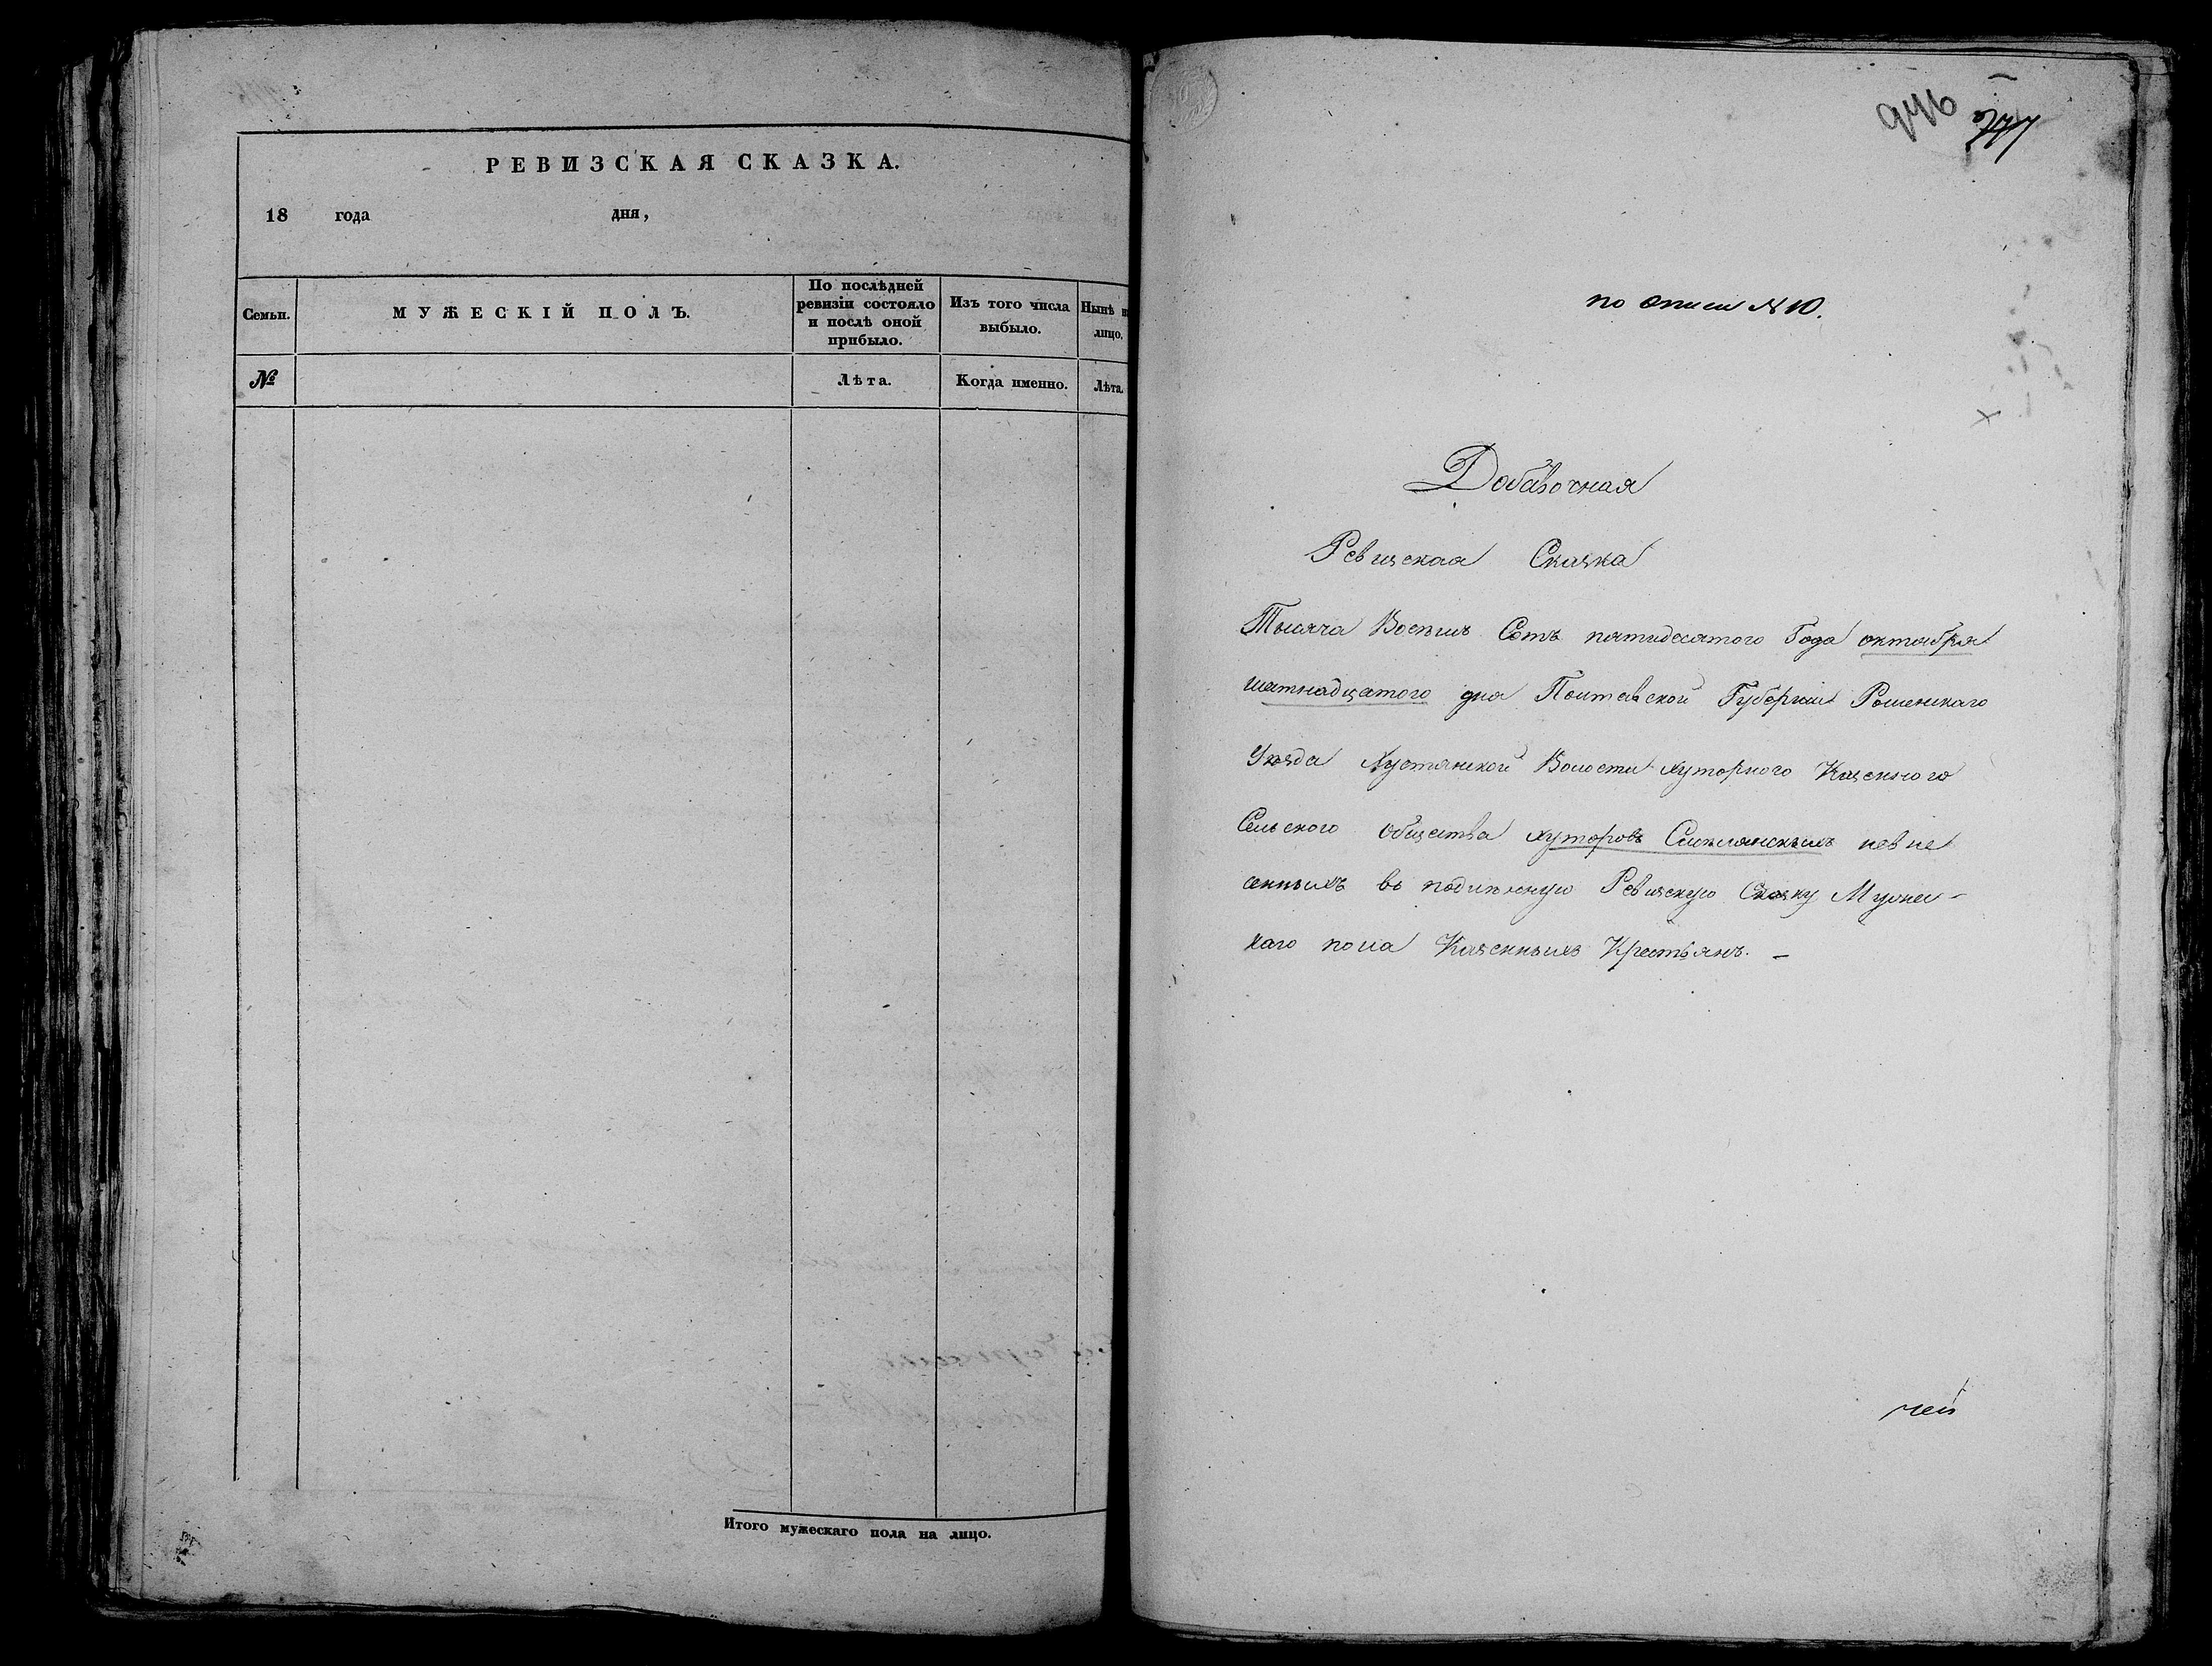 РЕВИЗСКАЯ СКАЗКА.
18 года дня,
Семьи.
МУЖЕСКІЙ ПОЛЪ.
По послѣдней
ревизіи состояло
и послѣ оной
прибыло.
Изъ того числа
выбыло.
Нынѣ н
лицо.
№
Лѣта.
Когда именно.
Лѣта
Итого мужескаго пола на лицо.
946
по описи №10.
Добавочная
Ревизская Сказка
Тысяча Восемь Сотъ пятидесятого Года октября
шестнадцатого дня Полтавской Губерніи Роменскаго
Уѣзда Хустянской Волости хуторного Казенного
Сельского Общества хуторовъ невне
сенныхъ въ подлѣжную Ревизскую Сказку Мужес-
каго пола Казенныхъ Крестьянъ. -